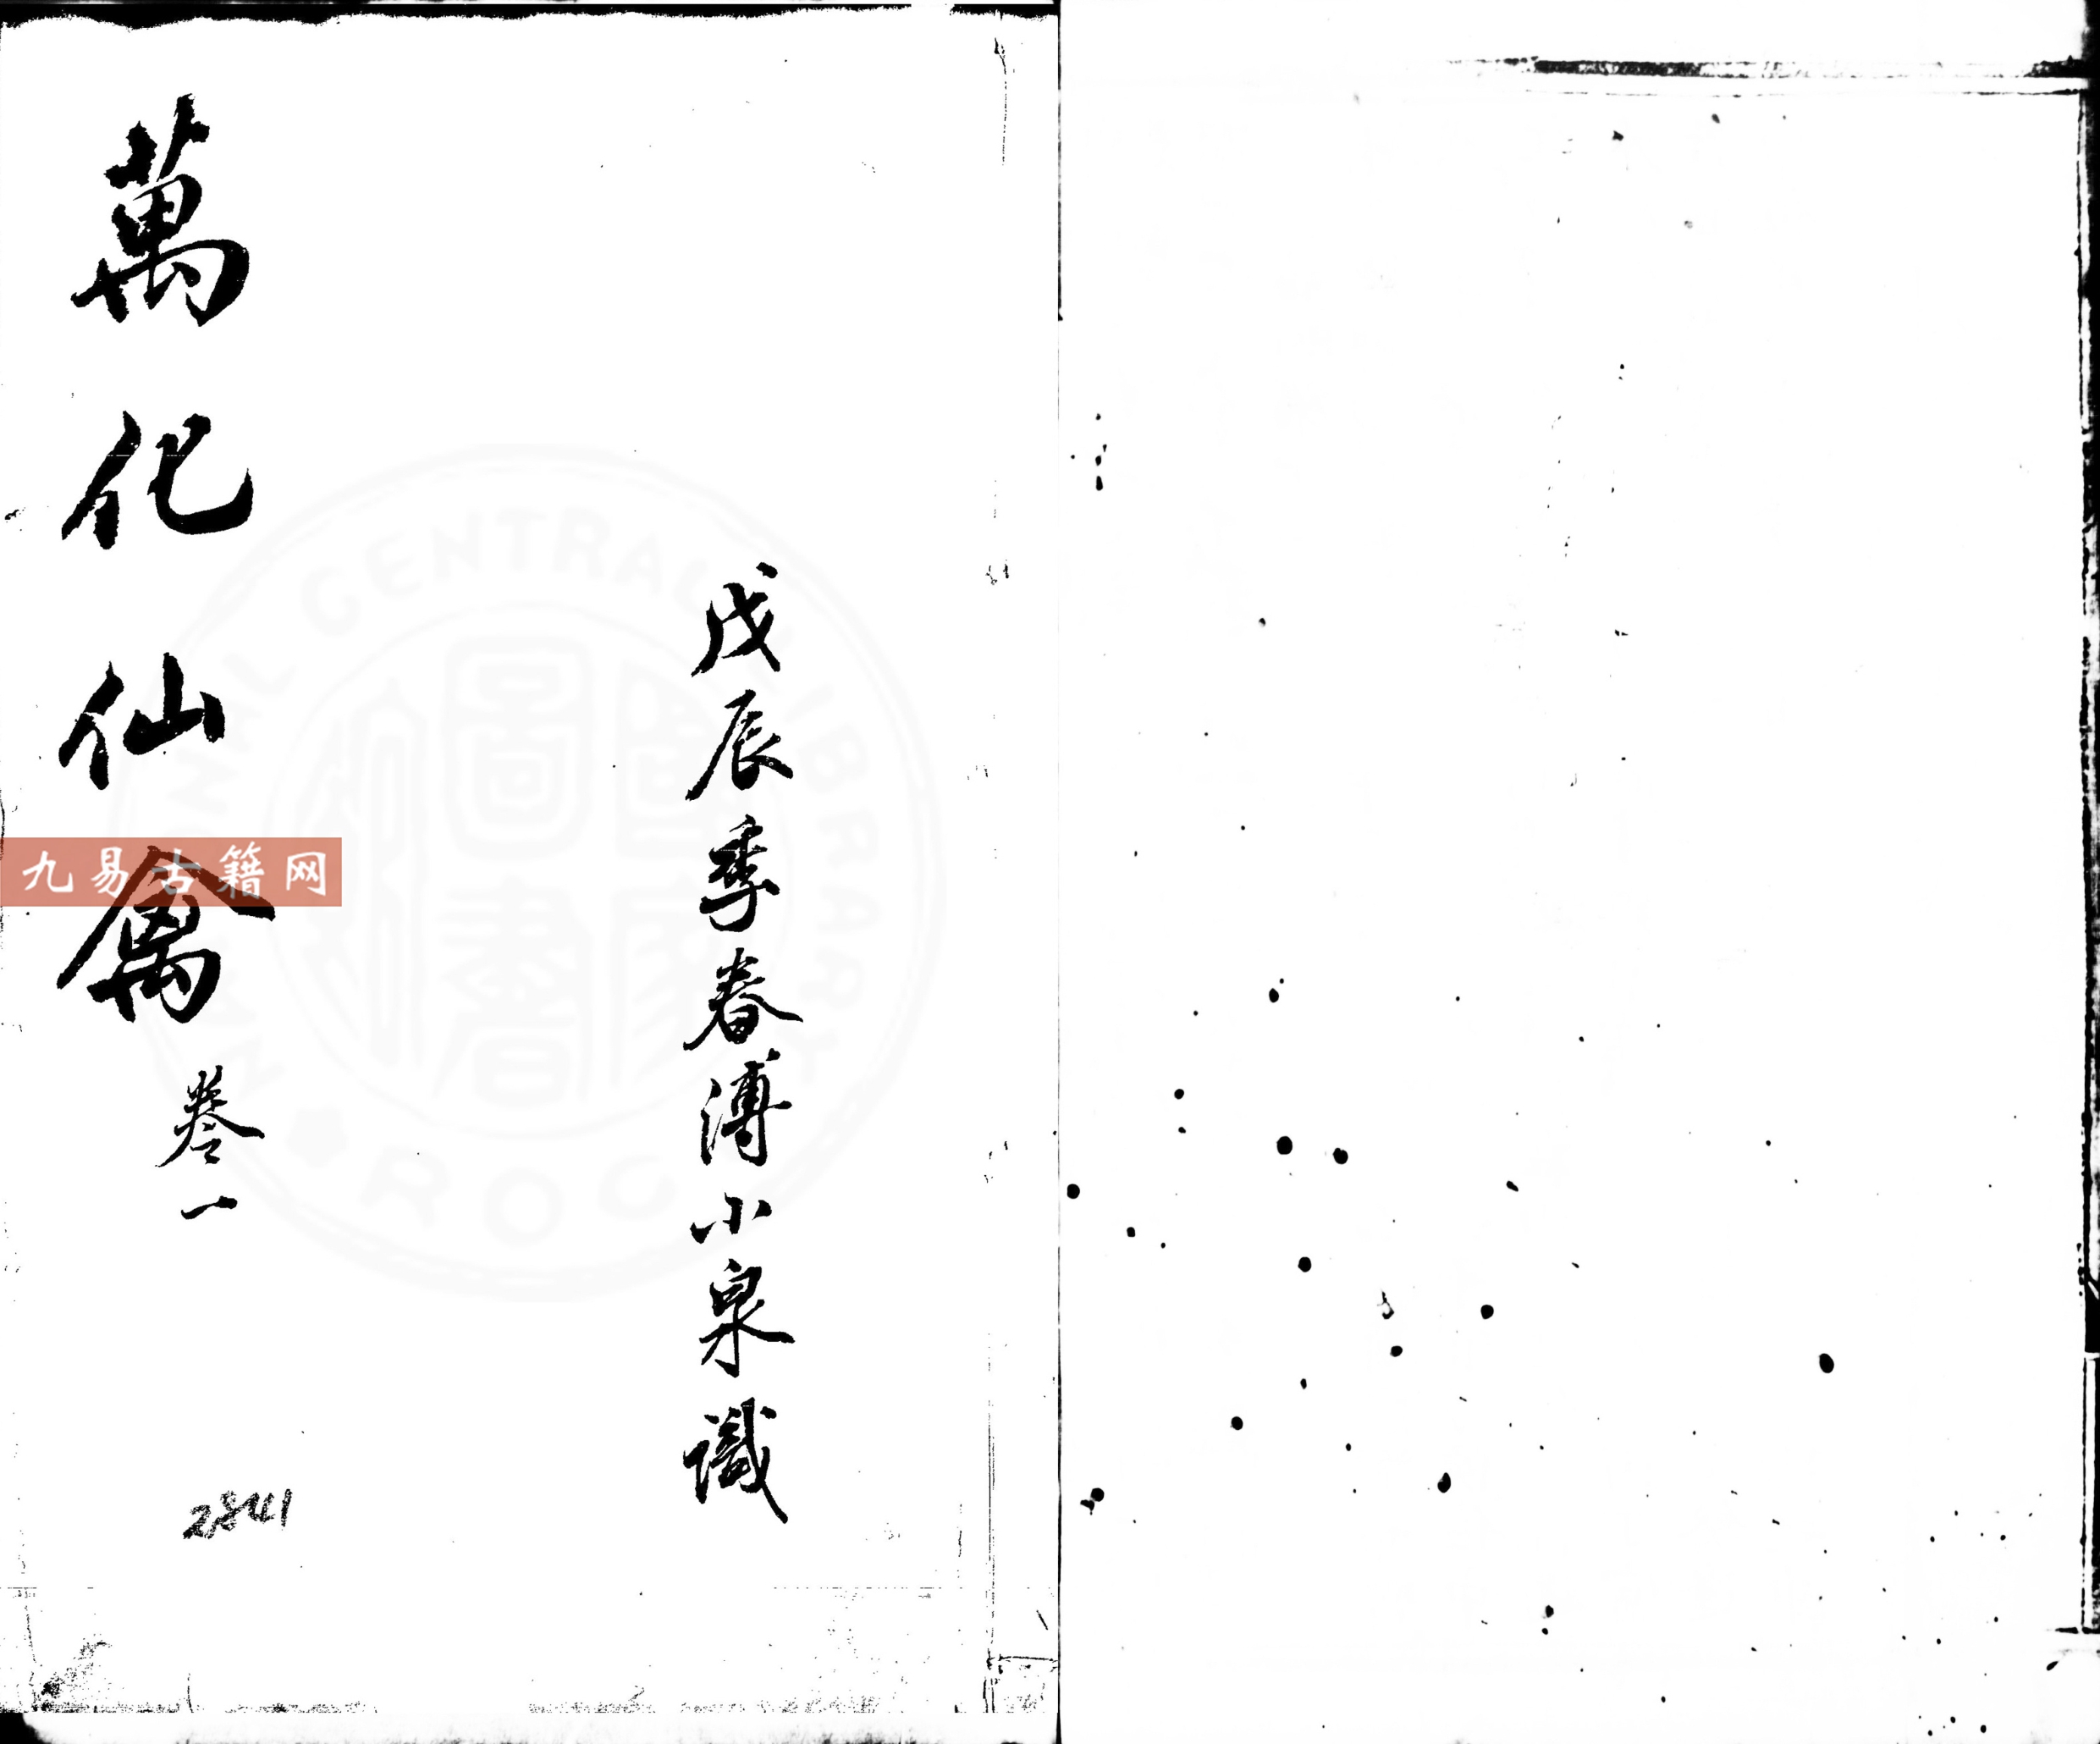 戊辰季春溥小泉識
萬化仙禽
卷一
2841
九易古籍网
NATIONAL CENTRAL LIBRARY
ROC
國家圖書